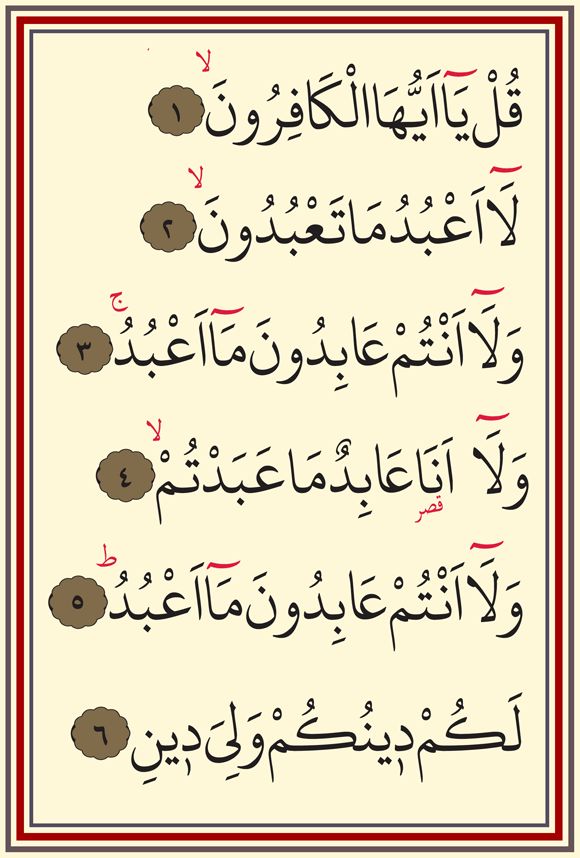 قُلْ يَٓا اَيُّهَا الْكَافِرُونَۙ ١
لَٓا اَعْبُدُ مَا تَعْبُدُونَۙ ٢
وَلَٓا اَنْتُمْ عَابِدُونَ مَٓا اَعْبُدُۚ ٣
وَلَٓا اَنَا۬ عَابِدٌ مَا عَبَدْتُمْۙ ٤
قصر
وَلَٓا اَنْتُمْ عَابِدُونَ مَٓا اَعْبُدُۜ ٥
لَكُمْ د۪ينُكُمْ وَلِيَ د۪ينِ ٦